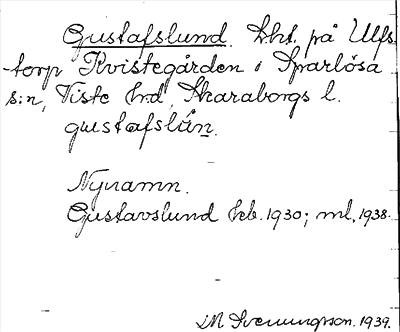 Gustafslund. Lht. på Ulfs-
torp Kvistegården i Sparlösa
s:n, Viste hrd, Skaraborgs l.
gustafslún.
Nynamn.
Gustavslund jeb. 1930; ml, 1938.
M Svenungsson. 1939.